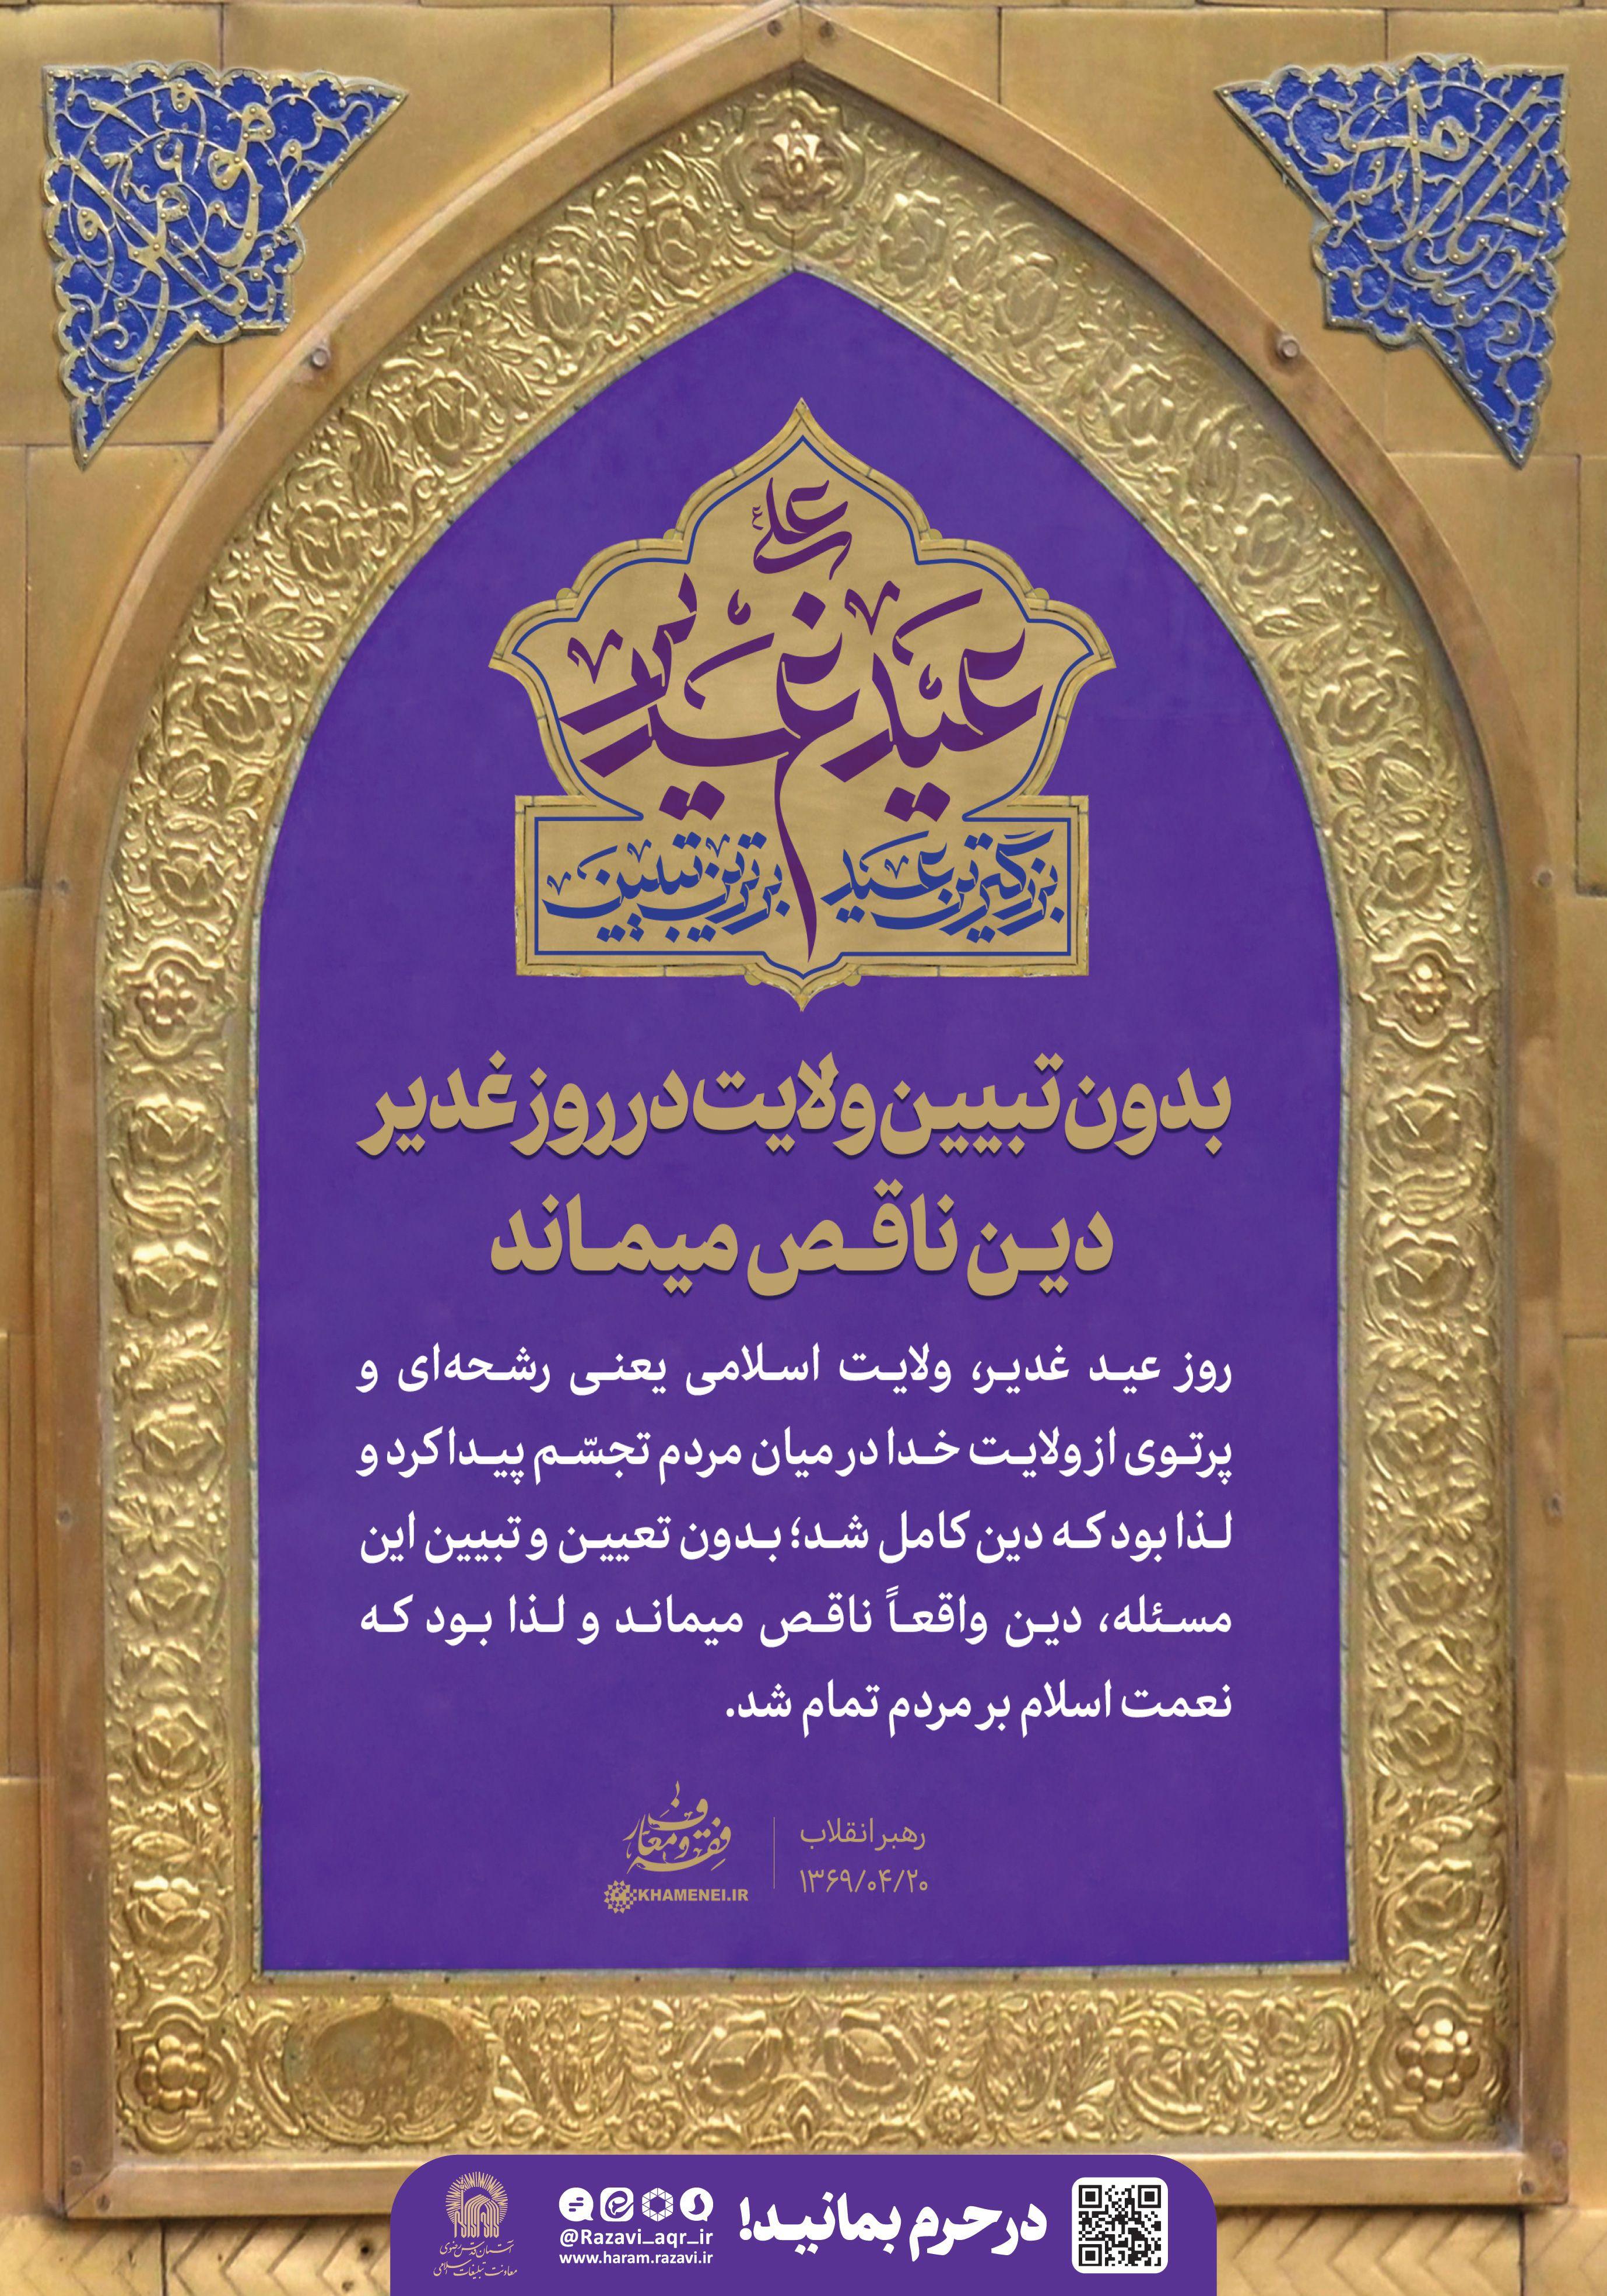 علی
عید غدیر
بزرگترین عید
برترین تبیین
بدون تبیین ولایت در روز غدیر
دین ناقص میماند
روز عید غدیر، ولایت اسلامی یعنی رشحه‌ای و
پرتوی از ولایت خدا در میان مردم تجسّم پیدا کرد و
لذا بود که دین کامل شد؛ بدون تعیین و تبیین این
مسئله، دین واقعاً ناقص میماند و لذا بود که
نعمت اسلام بر مردم تمام شد.
رهبر انقلاب
۱۳۶۹/۰۴/۲۰
فقه و معارف
KHAMENEI.IR
در حرم بمانید!
@Razavi_aqr_ir
www.haram.razavi.ir
آستان قدس رضوی
معاونت تبلیغات اسلامی